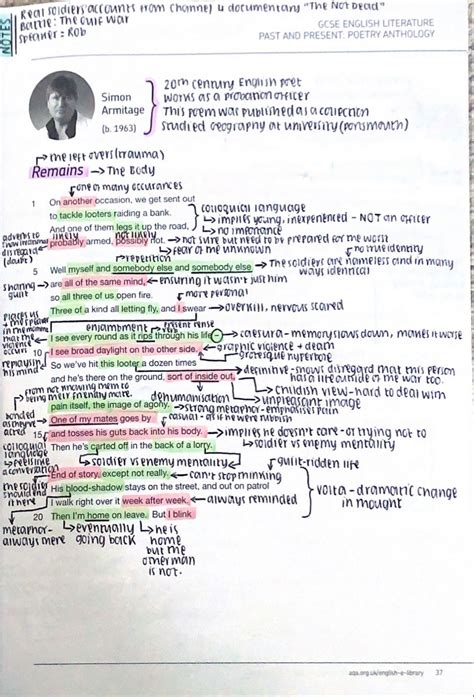 NOTES
Real soldiers accounts from Channel 4 documentary "The Not Dead"
Battle: The Gulf War
Speaker: Rob
GCSE ENGLISH LITERATURE
PAST AND PRESENT: POETRY ANTHOLOGY
Simon
Armitage
(b. 1963)
20th century English poet
works as a probation officer
This poem was published as a collection
Studied geography at university (Portsmouth)
the left overs (trauma)
Remains → The Body
one of many occurances
1 On another occasion, we get sent out
to tackle looters raiding a bank.
And one of them legs it up the road,
probably armed, possibly not.
colloquial language
implies young, inexperienced - NOT an officer
no importance
likely
not likely
not sure but need to be prepared for the worst
fear of the unknown
no true identity
repetition
5 Well myself and somebody else and somebody else
are all of the same mind,
so all three of us open fire.
Three of a kind all letting fly, and I swear
The soldiers are nameless and in many
ways identical
sharing
guilt
ensuring it wasn't just him
more personal
overkill, nervous scared
enjambment
present tense
I see every round as it rips through his life –
10 I see broad daylight on the other side.
So we've hit this looter a dozen times
and he's there on the ground, sort of inside out,
caesura - memory slows down, makes it worse
graphic violence + death
grotesque hyperbole
definitive - shows disregard that this person
has a life outside of the war too.
childish view - hard to deal with
unpleasant image
dehumanisation
pain itself, the image of agony.
One of my mates goes by
15 and tosses his guts back into his body.
Then he's carted off in the back of a lorry.
strong metaphor - emphasises pain
casual - as if he were rubbish
implies he doesn't care - or trying not to
soldier vs enemy mentality
colloquial
language
soldier vs enemy mentality
End of story, except not really.
His blood-shadow stays on the street, and out on patrol
I walk right over it week after week.
20 Then I'm home on leave. But I blink
can't stop thinking
guilt-ridden life
always reminded
volta - dramatic change
in thought
metaphor-
always there
eventually
going back
he is
home
but the
other man
is not.
aqa.org.uk/english-e-library 37